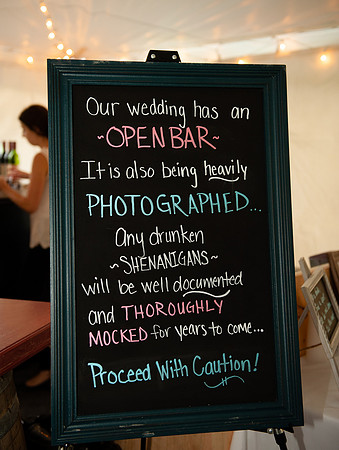 Our wedding has an
~OPEN BAR~
It is also being heavily
PHOTOGRAPHED...
Any drunken
~SHENANIGANS~
will be well documented
and THOROUGHLY
MOCKED for years to come...
Proceed With Caution!